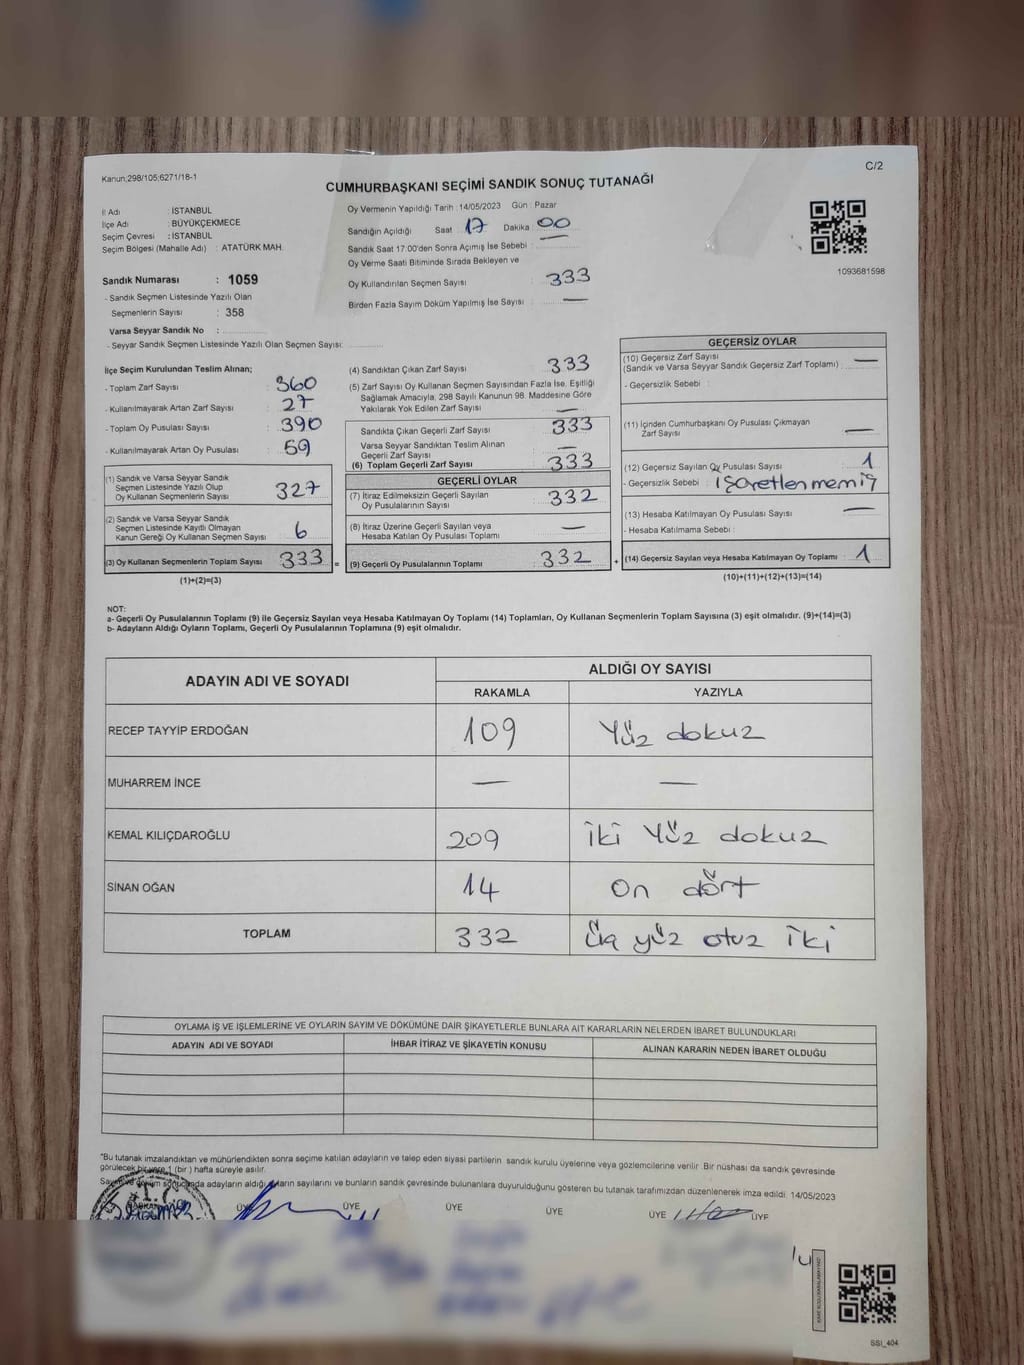 Kanun;298/105;6271/18-1
C/2
CUMHURBAŞKANI SEÇİMİ SANDIK SONUÇ TUTANAĞI
İl Adı : İSTANBUL
İlçe Adı : BÜYÜKÇEKMECE
Seçim Çevresi : İSTANBUL
Seçim Bölgesi (Mahalle Adı) : ATATÜRK MAH.
Sandık Numarası : 1059
- Sandık Seçmen Listesinde Yazılı Olan
Seçmenlerin Sayısı : 358
Varsa Seyyar Sandık No :
- Seyyar Sandık Seçmen Listesinde Yazılı Olan Seçmen Sayısı:
Oy Vermenin Yapıldığı Tarih : 14/05/2023 Gün : Pazar
Sandığın Açıldığı Saat 17 Dakika 00
Sandık Saat 17:00'den Sonra Açımış İse Sebebi : —
Oy Verme Saati Bitiminde Sırada Bekleyen ve
Oy Kullandırılan Seçmen Sayısı : 333
Birden Fazla Sayım Döküm Yapılmış İse Sayısı : —
1093681598
İlçe Seçim Kurulundan Teslim Alınan;
- Toplam Zarf Sayısı : 360
- Kullanılmayarak Artan Zarf Sayısı : 27
- Toplam Oy Pusulası Sayısı : 390
- Kullanılmayarak Artan Oy Pusulası : 59
(1) Sandık ve Varsa Seyyar Sandık
Seçmen Listesinde Yazılı Olup
Oy Kullanan Seçmenlerin Sayısı : 327
(2) Sandık ve Varsa Seyyar Sandık
Seçmen Listesinde Kayıtlı Olmayan
Kanun Gereği Oy Kullanan Seçmen Sayısı : 6
(3) Oy Kullanan Seçmenlerin Toplam Sayısı : 333
(1)+(2)=(3)
(4) Sandıktan Çıkan Zarf Sayısı : 333
(5) Zarf Sayısı Oy Kullanan Seçmen Sayısından Fazla İse, Eşitliği
Sağlamak Amacıyla, 298 Sayılı Kanunun 98. Maddesine Göre
Yakılarak Yok Edilen Zarf Sayısı : —
Sandıkta Çıkan Geçerli Zarf Sayısı : 333
Varsa Seyyar Sandıktan Teslim Alınan
Geçerli Zarf Sayısı : —
(6) Toplam Geçerli Zarf Sayısı : 333
GEÇERLİ OYLAR
(7) İtiraz Edilmeksizin Geçerli Sayılan
Oy Pusulalarının Sayısı : 332
(8) İtiraz Üzerine Geçerli Sayılan veya
Hesaba Katılan Oy Pusulası Toplamı : —
= (9) Geçerli Oy Pusulalarının Toplamı : 332
GEÇERSİZ OYLAR
(10) Geçersiz Zarf Sayısı
(Sandık ve Varsa Seyyar Sandık Geçersiz Zarf Toplamı) : —
- Geçersizlik Sebebi :
(11) İçinden Cumhurbaşkanı Oy Pusulası Çıkmayan
Zarf Sayısı : —
(12) Geçersiz Sayılan Oy Pusulası Sayısı : 1
- Geçersizlik Sebebi : işaretlenmemiş
(13) Hesaba Katılmayan Oy Pusulası Sayısı : —
- Hesaba Katılmama Sebebi :
+ (14) Geçersiz Sayılan veya Hesaba Katılmayan Oy Toplamı : 1
(10)+(11)+(12)+(13)=(14)
NOT:
a- Geçerli Oy Pusulalarının Toplamı (9) ile Geçersiz Sayılan veya Hesaba Katılmayan Oy Toplamı (14) Toplamları, Oy Kullanan Seçmenlerin Toplam Sayısına (3) eşit olmalıdır. (9)+(14)=(3)
b- Adayların Aldığı Oyların Toplamı, Geçerli Oy Pusulalarının Toplamına (9) eşit olmalıdır.
ADAYIN ADI VE SOYADI ALDIĞI OY SAYISI
RAKAMLA YAZIYLA
RECEP TAYYİP ERDOĞAN 109 Yüz dokuz
MUHARREM İNCE — —
KEMAL KILIÇDAROĞLU 209 iki Yüz dokuz
SİNAN OĞAN 14 On dört
TOPLAM 332 Üç yüz otuz iki
OYLAMA İŞ VE İŞLEMLERİNE VE OYLARIN SAYIM VE DÖKÜMÜNE DAİR ŞİKAYETLERLE BUNLARA AİT KARARLARIN NELERDEN İBARET BULUNDUKLARI
ADAYIN ADI VE SOYADI İHBAR İTİRAZ VE ŞİKAYETİN KONUSU ALINAN KARARIN NEDEN İBARET OLDUĞU
"Bu tutanak imzalandıktan ve mühürlendikten sonra seçime katılan adayların ve talep eden siyasi partilerin sandık kurulu üyelerine veya gözlemcilerine verilir. Bir nüshası da sandık çevresinde
görülecek bir yere 1 (bir) hafta süreyle asılır.
adayların aldığı sayılarını ve bunların sandık çevresinde bulunanlara duyurulduğunu gösteren bu tutanak tarafımızdan düzenlenerek imza edildi. 14/05/2023
T.C.
BAŞKAN ÜYE ÜYE ÜYE ÜYE ÜYE ÜYE
SSI_404